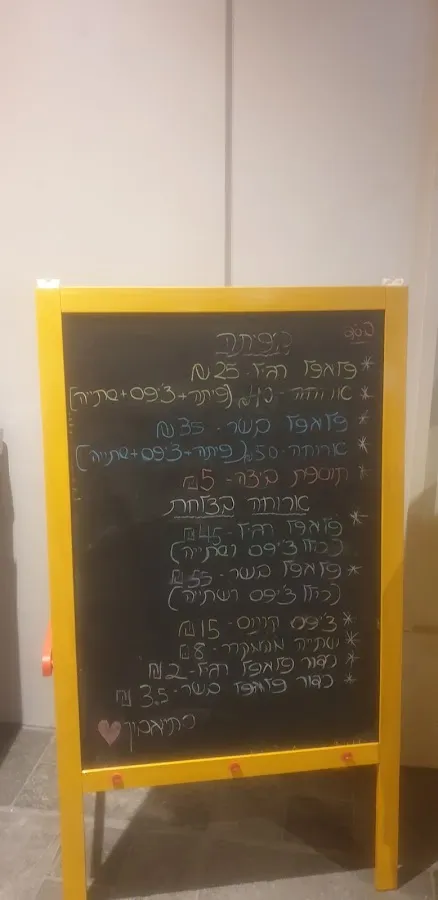 בס"ד
הפיתה
* פלאפל רגיל - 25 ₪
* ארוחה - 40 ₪ (פיתה+צ'יפס+שתייה)
* פלאפל בשר - 35 ₪
* ארוחה - 50 ₪ (פיתה+צ'יפס+שתייה)
* תוספת ביצה - 5 ₪
ארוחה בצלחת
* פלאפל רגיל - 45 ₪
(כולל צ'יפס ושתייה)
* פלאפל בשר - 55 ₪
(כולל צ'יפס ושתייה)
* צ'יפס קטן - 15 ₪
* שתייה מהמקרר - 8 ₪
* כדור פלאפל רגיל - 2 ₪
* כדור פלאפל בשר - 3.5 ₪
בתיאבון